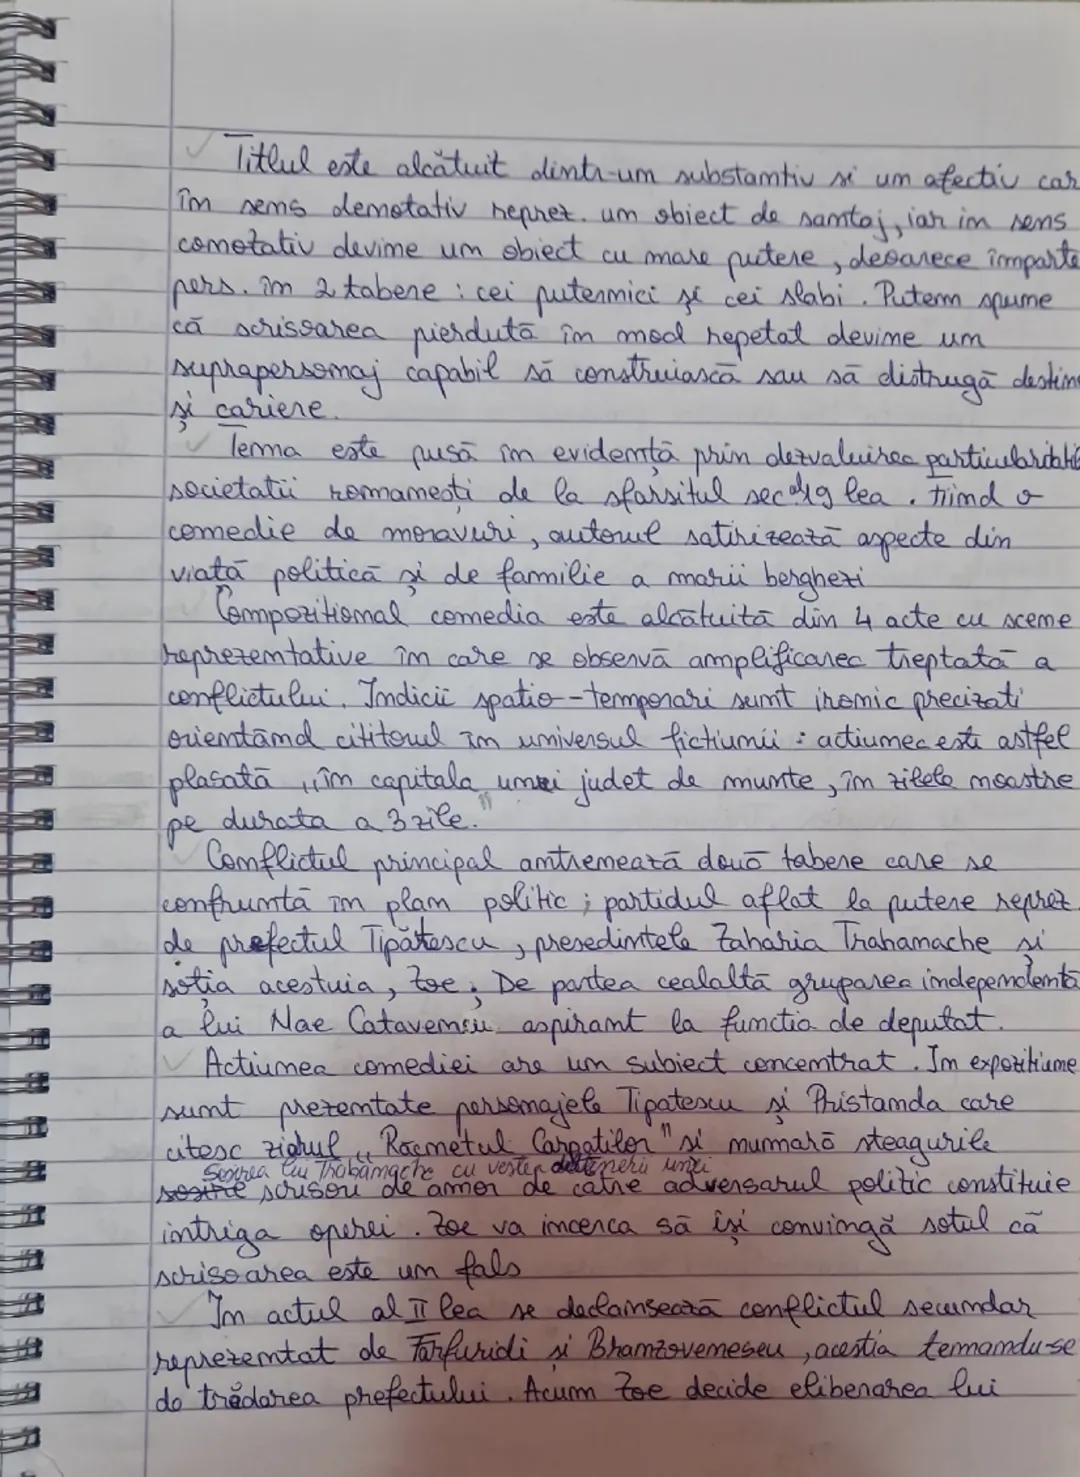 Titlul este alcătuit dintr-un substantiv si un afectiv car
în sens denotativ reprez. un obiect de santaj, iar in sens
conotativ devine un obiect cu mare putere, deoarece împarte
pers. în 2 tabere : cei puternici și cei slabi. Putem spune
că scrisoarea pierdută în mod repetat devine un
suprapersonaj capabil să construiască sau să distrugă destine
și cariere.
Tema este pusă în evidență prin dezvaluirea
societatii romanești de la sfarsitul sec al 19 lea. fiind o
comedie de moravuri, autorul satirizează aspecte din
viață politică și de familie a marii berghezi
Compozitional comedia este alcătuită din 4 acte cu scene
reprezentative în care se observă amplificarea treptată a
conflictului. Indicii spatio-temporari sunt ironic precizati
orientând cititorul în universul fictiunii : actiunea este astfel
plasată „în capitala unui judet de munte, în zilele noastre
pe durata a 3 zile."
Conflictul principal antrenează două tabere care se
confruntă în plan politic ; partidul aflat la putere reprez.
de prefectul Tipătescu, presedintele Zaharia Trahanache si
soția acestuia, Zoe ; De partea cealaltă gruparea independentă
a lui Nae Catavencu aspirant la functia de deputat.
Actiunea comediei are un subiect concentrat. In expozitiune
sunt prezentate personajele Tipatescu și Pristanda care
citesc ziarul „Racnetul Carpatilor" si numară steagurile
Sosirea lui Trahanache cu vestea detinerii unei
scrisori de amor de catre adversarul politic constituie
intriga operei. Zoe va incerca să își convingă sotul că
scrisoarea este un fals
In actul al II lea se declansează conflictul secundar
reprezentat de Farfuridi si Branzovenescu, acestia temandu-se
de trădarea prefectului. Acum Zoe decide eliberarea lui